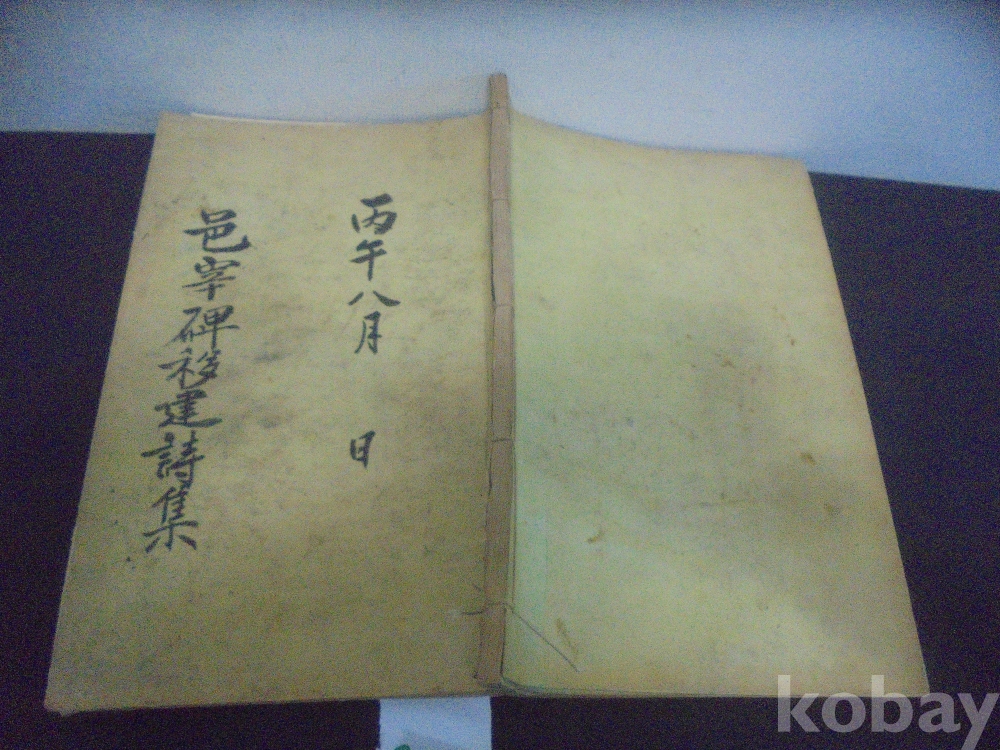 丙午八月 日
邑宰碑移建詩集
kobay